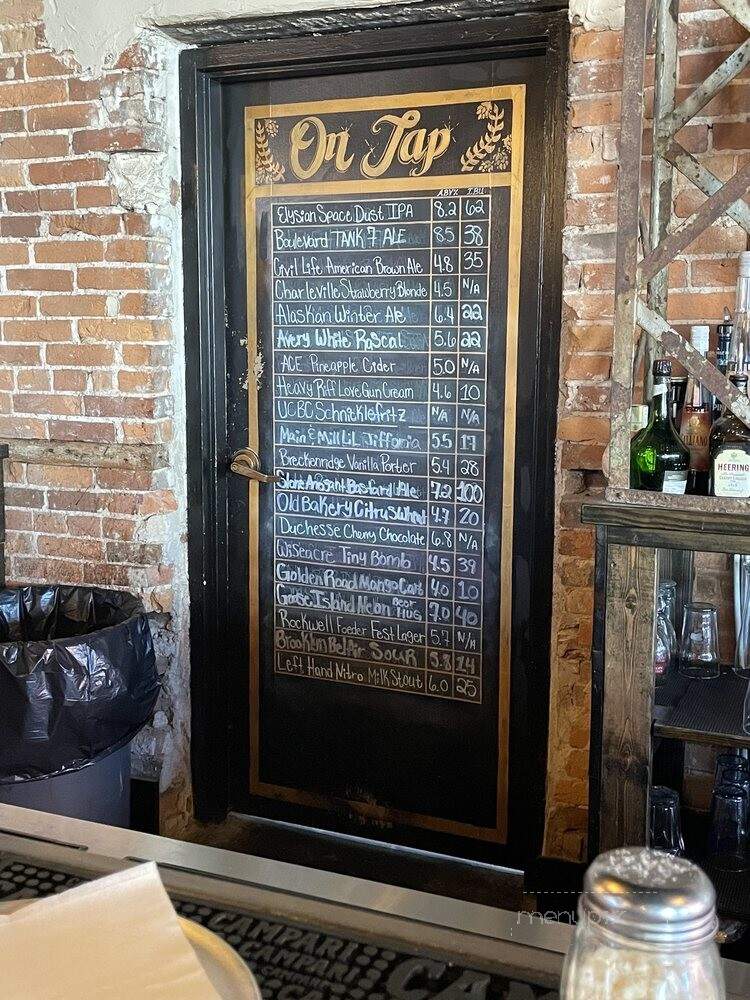 On Tap
ABV% IBU
Elysian Space Dust IPA 8.2 62
Boulevard TANK 7 ALE 8.5 38
Civil Life American Brown Ale 4.8 35
Charleville Strawberry Blonde 4.5 N/A
Alaskan Winter Ale 6.4 22
Avery White Rascal 5.6 22
ACE Pineapple Cider 5.0 N/A
Heavy Riff Love Gun Cream 4.6 10
UCBC Schnicklefritz N/A N/A
Main & Mill LiL Jifforia 5.5 17
Breckenridge Vanilla Porter 5.4 28
Stone Arrogant Bastard Ale 7.2 100
Old Bakery Citrus Wheat 4.7 20
Duchesse Cherry Chocolate 6.8 N/A
Wiseacre Tiny Bomb 4.5 39
Golden Road Mango Cart 4.0 10
Goose Island Neon Beer HUG 7.0 40
Rockwell Foeder Fest Lager 5.7 N/A
Brooklyn Bel Air SOUR 5.8 14
Left Hand Nitro Milk Stout 6.0 25
HEERING
menupix
CAMPARI
CAMPARI